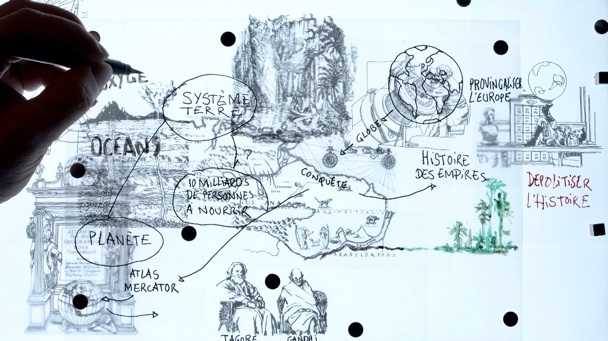 OCÉANS
SYSTÈME
TERRE
?
10 MILLIARDS
DE PERSONNES
À NOURRIR
PLANÈTE
ATLAS
MERCATOR
GLOBE
CONQUÊTE
HISTOIRE
DES EMPIRES
PROVINCIALISER
L'EUROPE
DÉPOLITISER
L'HISTOIRE
TAGORE
GANDHI